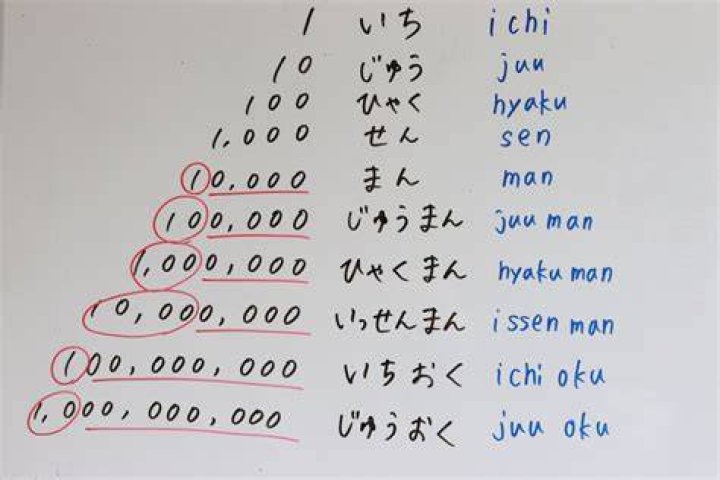 1 いち ichi
10 じゅう juu
100 ひゃく hyaku
1,000 せん sen
10,000 まん man
100,000 じゅうまん juu man
1,000,000 ひゃくまん hyaku man
10,000,000 いっせんまん issen man
100,000,000 いちおく ichi oku
1,000,000,000 じゅうおく juu oku